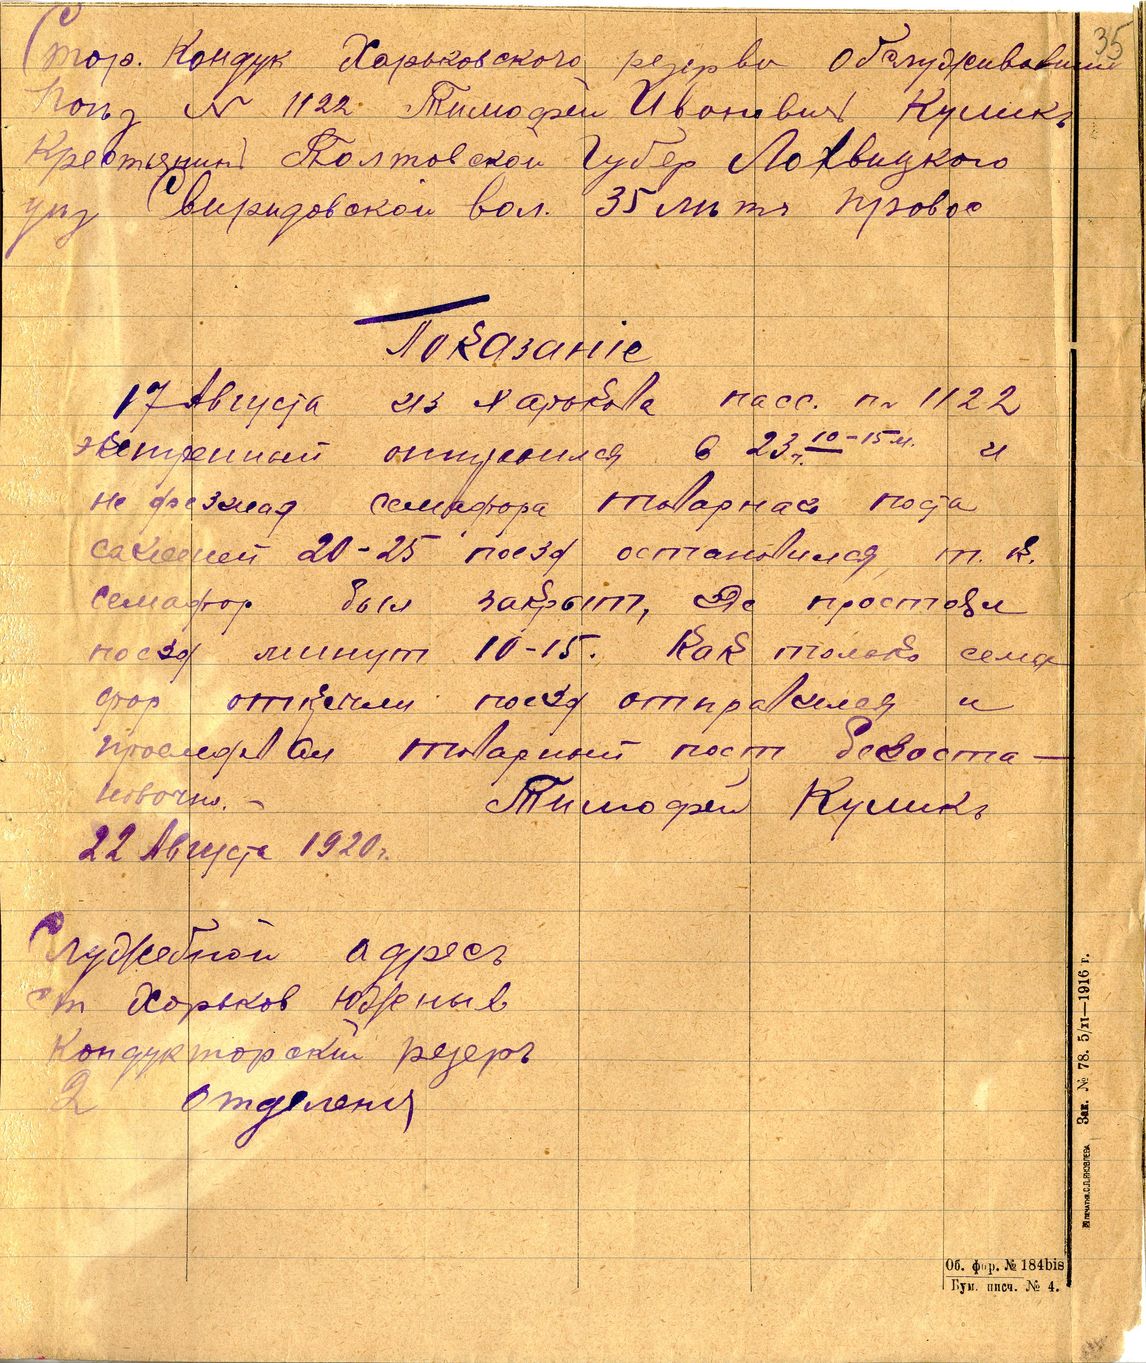 35
Стар. Кондук Харьковского резерва обслуживавший
поезд № 1122 Тимофей Иванович Куликъ
Крестьянин Полтовской Губер Лохвицкого
уез Свиридовской вол. 35 лѣтъ правос
Показаніе
17 Августа из Харькова пасс. п. № 1122
экстренный отправился в 23 ч. 10-15 м. и
не доезжая семафора товарнаг поста
саженей 20-25 поезд остановился, т. к.
семафор был закрыт, где простоял
поезд минут 10-15. Как только сема
фор открыли поезд отправился и
проследовал товарный пост безоста—
новочно. – Тимофей Куликъ
22 Августа 1920 г.
Служебной адресъ
ст Харьков Южныв
Кондукторский резеръ
2 отделения
Зак. № 78. 5/XI—1916 г.
печатня С.П. Яковлева
Об. фор. № 184bis
Бум. писч. № 4.